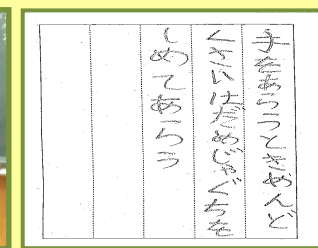 手をあらうときめんど
くさいけどだめじゃぐちを
しめてあらう